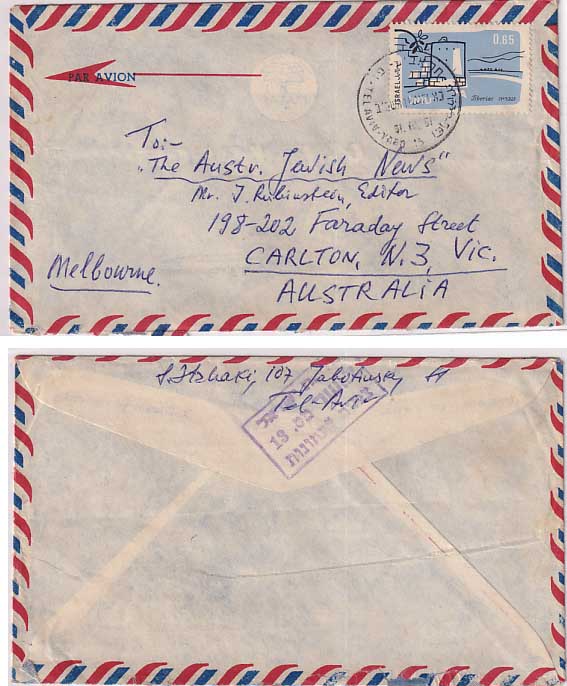 PAR AVION
0.65
ISRAEL
Tiberias טבריה
TEL AVIV
To:-
"The Austr. Jewish News"
Mr. J. Rubinstein, Editor
198-202 Faraday Street
CARLTON, N.3, Vic.
Melbourne.
AUSTRALIA
S. Itzhaki, 107 Jabotinsky St
Tel-Aviv